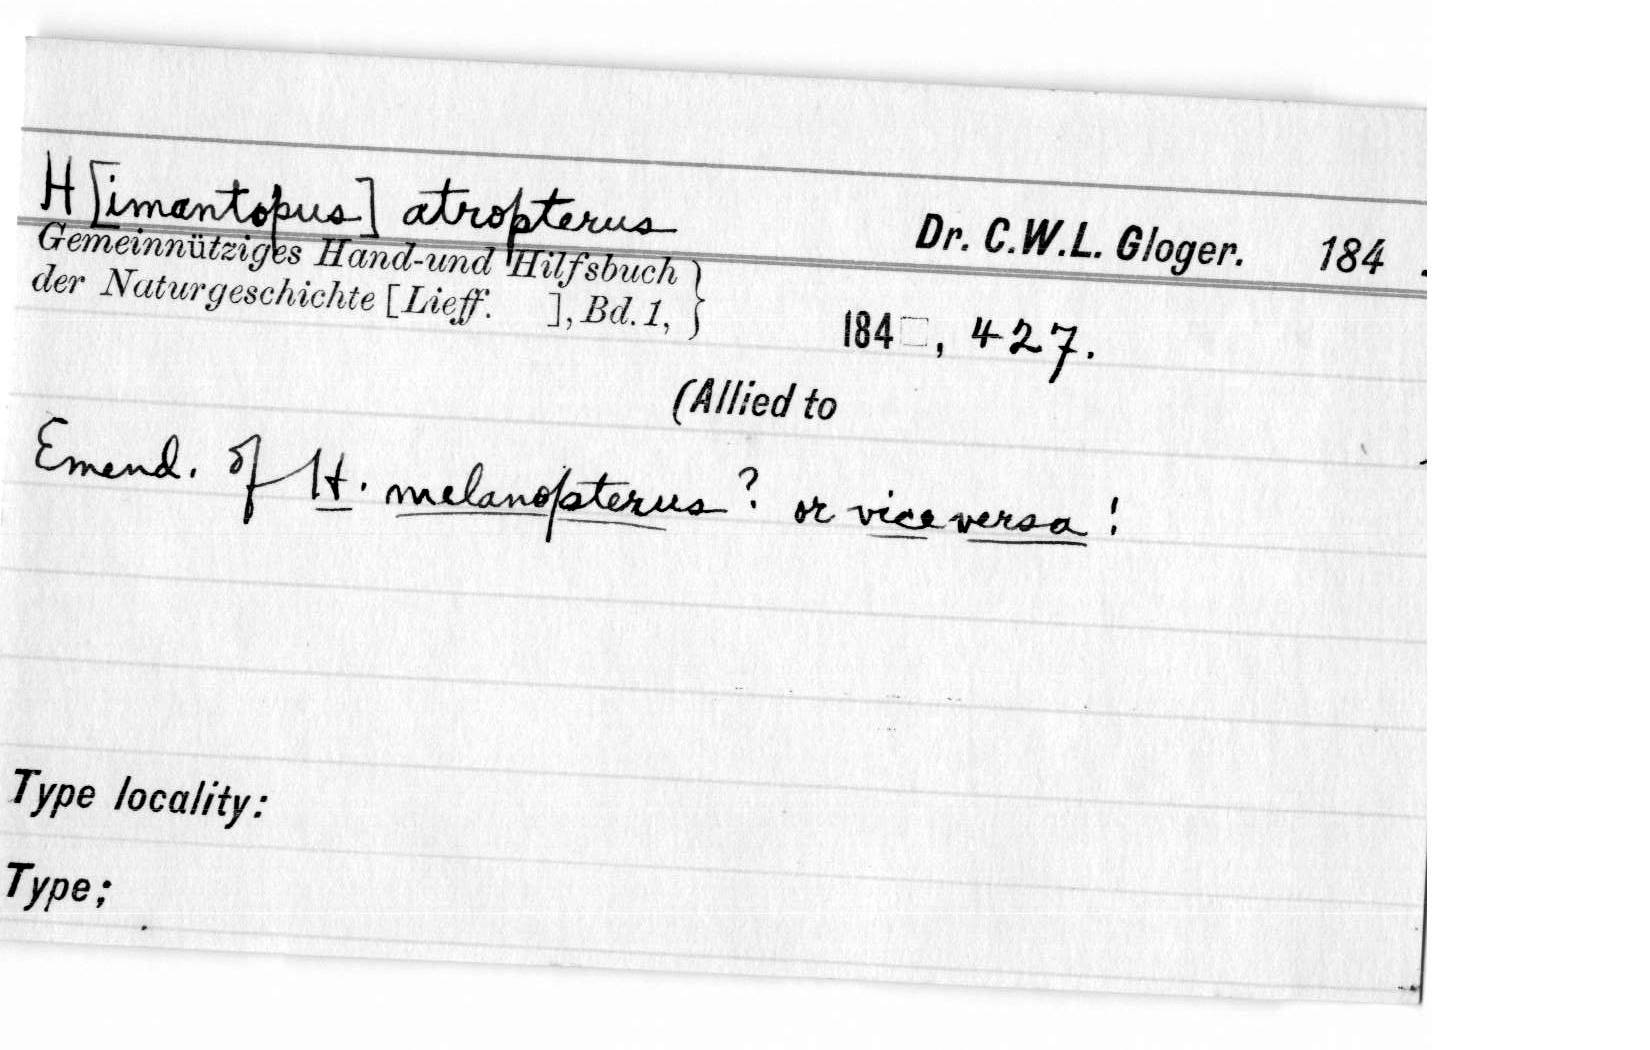 H[imantopus] atropterus Dr. C.W.L. Gloger. 184 .
Gemeinnütziges Hand-und Hilfsbuch }
der Naturgeschichte [Lieff. ], Bd. 1, } 184 , 427.
(Allied to )
Emend. of H. melanopterus? or vice versa!
Type locality:
Type;